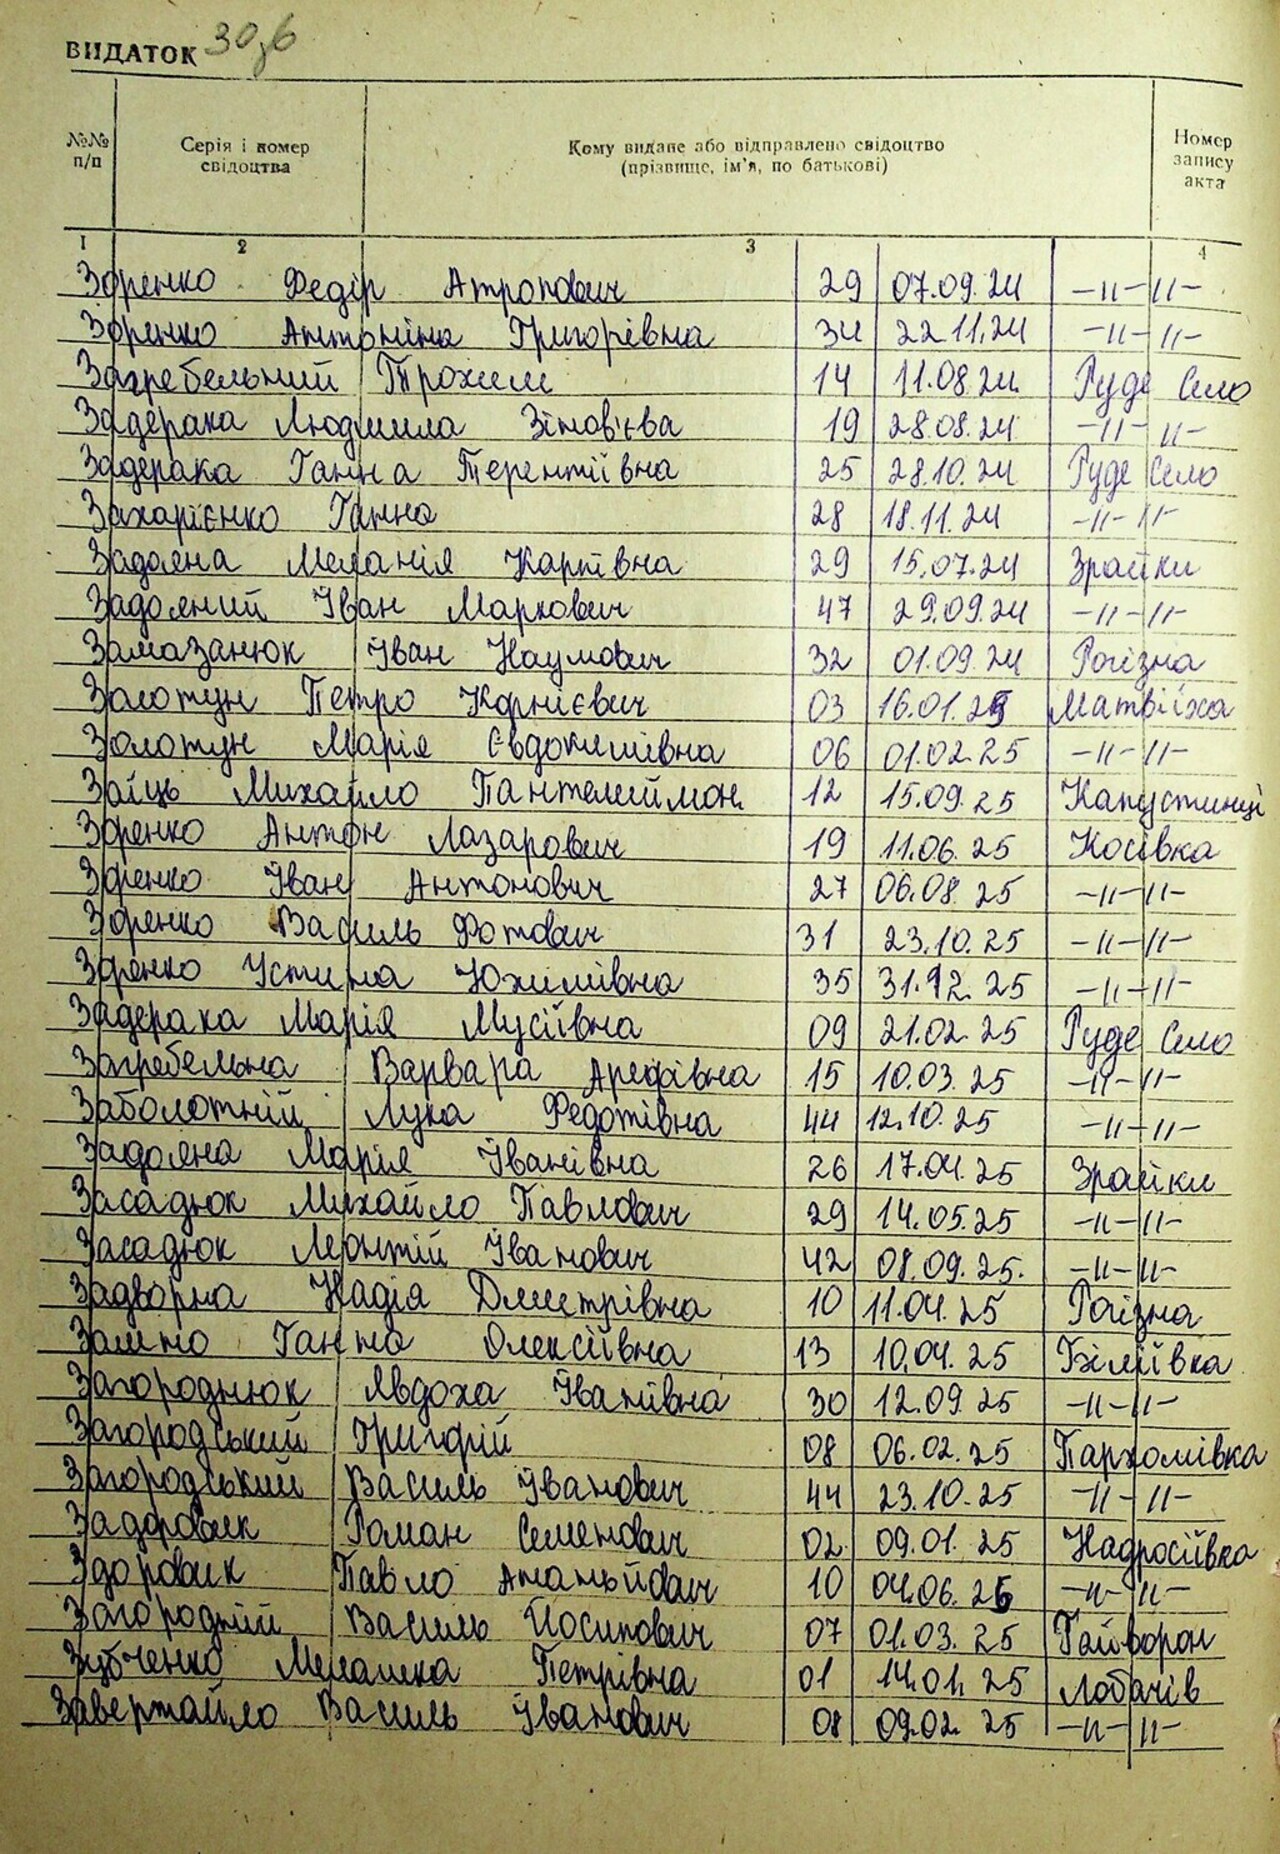 ВИДАТОК 30зб
№№ п/п
Серія і номер свідоцтва
Кому видане або відправлено свідоцтво (прізвище, ім'я, по батькові)
Номер запису акта
1 2 3 4
Зоренко Федір Атропович 29 07.09.24 -11-11-
Зоренко Антоніна Григорівна 34 22.11.24 -11-11-
Загребельний Трохим 14 11.08.24 Руде Село
Задерака Людмила Зінов'єва 19 28.08.24 -11-11-
Задерака Ганна Терентіївна 25 28.10.24 Руде Село
Захарієнко Ганна 28 18.11.24 -11-11-
Задояна Меланія Карпівна 29 15.07.24 Зрайки
Задояний Іван Маркович 47 29.09.24 -11-11-
Замазанюк Іван Наумович 32 01.09.24 Рогізна
Золотун Петро Корнієвич 03 16.01.25 Матвіїха
Золотун Марія Євдокимівна 06 01.02.25 -11-11-
Заїць Михайло Пантелиймон. 12 15.09.25 Капустинці
Зоренко Антон Лазарович 19 11.06.25 Косівка
Зоренко Іван Антонович 27 06.08.25 -11-11-
Зоренко Василь Фотович 31 23.10.25 -11-11-
Зоренко Устина Юхимівна 35 31.12.25 -11-11-
Задерака Марія Мусіївна 09 21.02.25 Руде Село
Загребельна Варвара Арефівна 15 10.03.25 -11-11-
Заболотній Лука Федотівна 44 12.10.25 -11-11-
Задояна Марія Іванівна 26 17.04.25 Зрайки
Засадюк Михайло Павлович 29 14.05.25 -11-11-
Засадюк Леонтій Іванович 42 08.09.25. -11-11-
Задворна Надія Дмитрівна 10 11.04.25 Рогізна
Ганна Олексіївна 13 10.04.25 Біліївка
Загороднюк Явдоха Іванівна 30 12.09.25 -11-11-
Загородський Григорій 08 06.02.25 Пархомівка
Загородський Василь Іванович 44 23.10.25 -11-11-
Задоровик Роман Семенович 02 09.01.25 Надросіївка
Здоровик Павло Ананьйович 10 04.06.25 -11-11-
Загородній Василь Йосипович 07 01.03.25 Гайворон
Зубченко Мелашка Петрівна 01 14.01.25 Лобачів
Завертайло Василь Іванович 08 09.02.25 -11-11-